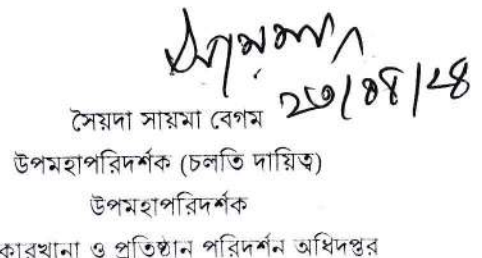 সায়মা
২৩/০৪/২৪
সৈয়দা সায়মা বেগম
উপমহাপরিদর্শক (চলতি দায়িত্ব)
উপমহাপরিদর্শক
কারখানা ও প্রতিষ্ঠান পরিদর্শন অধিদপ্তর